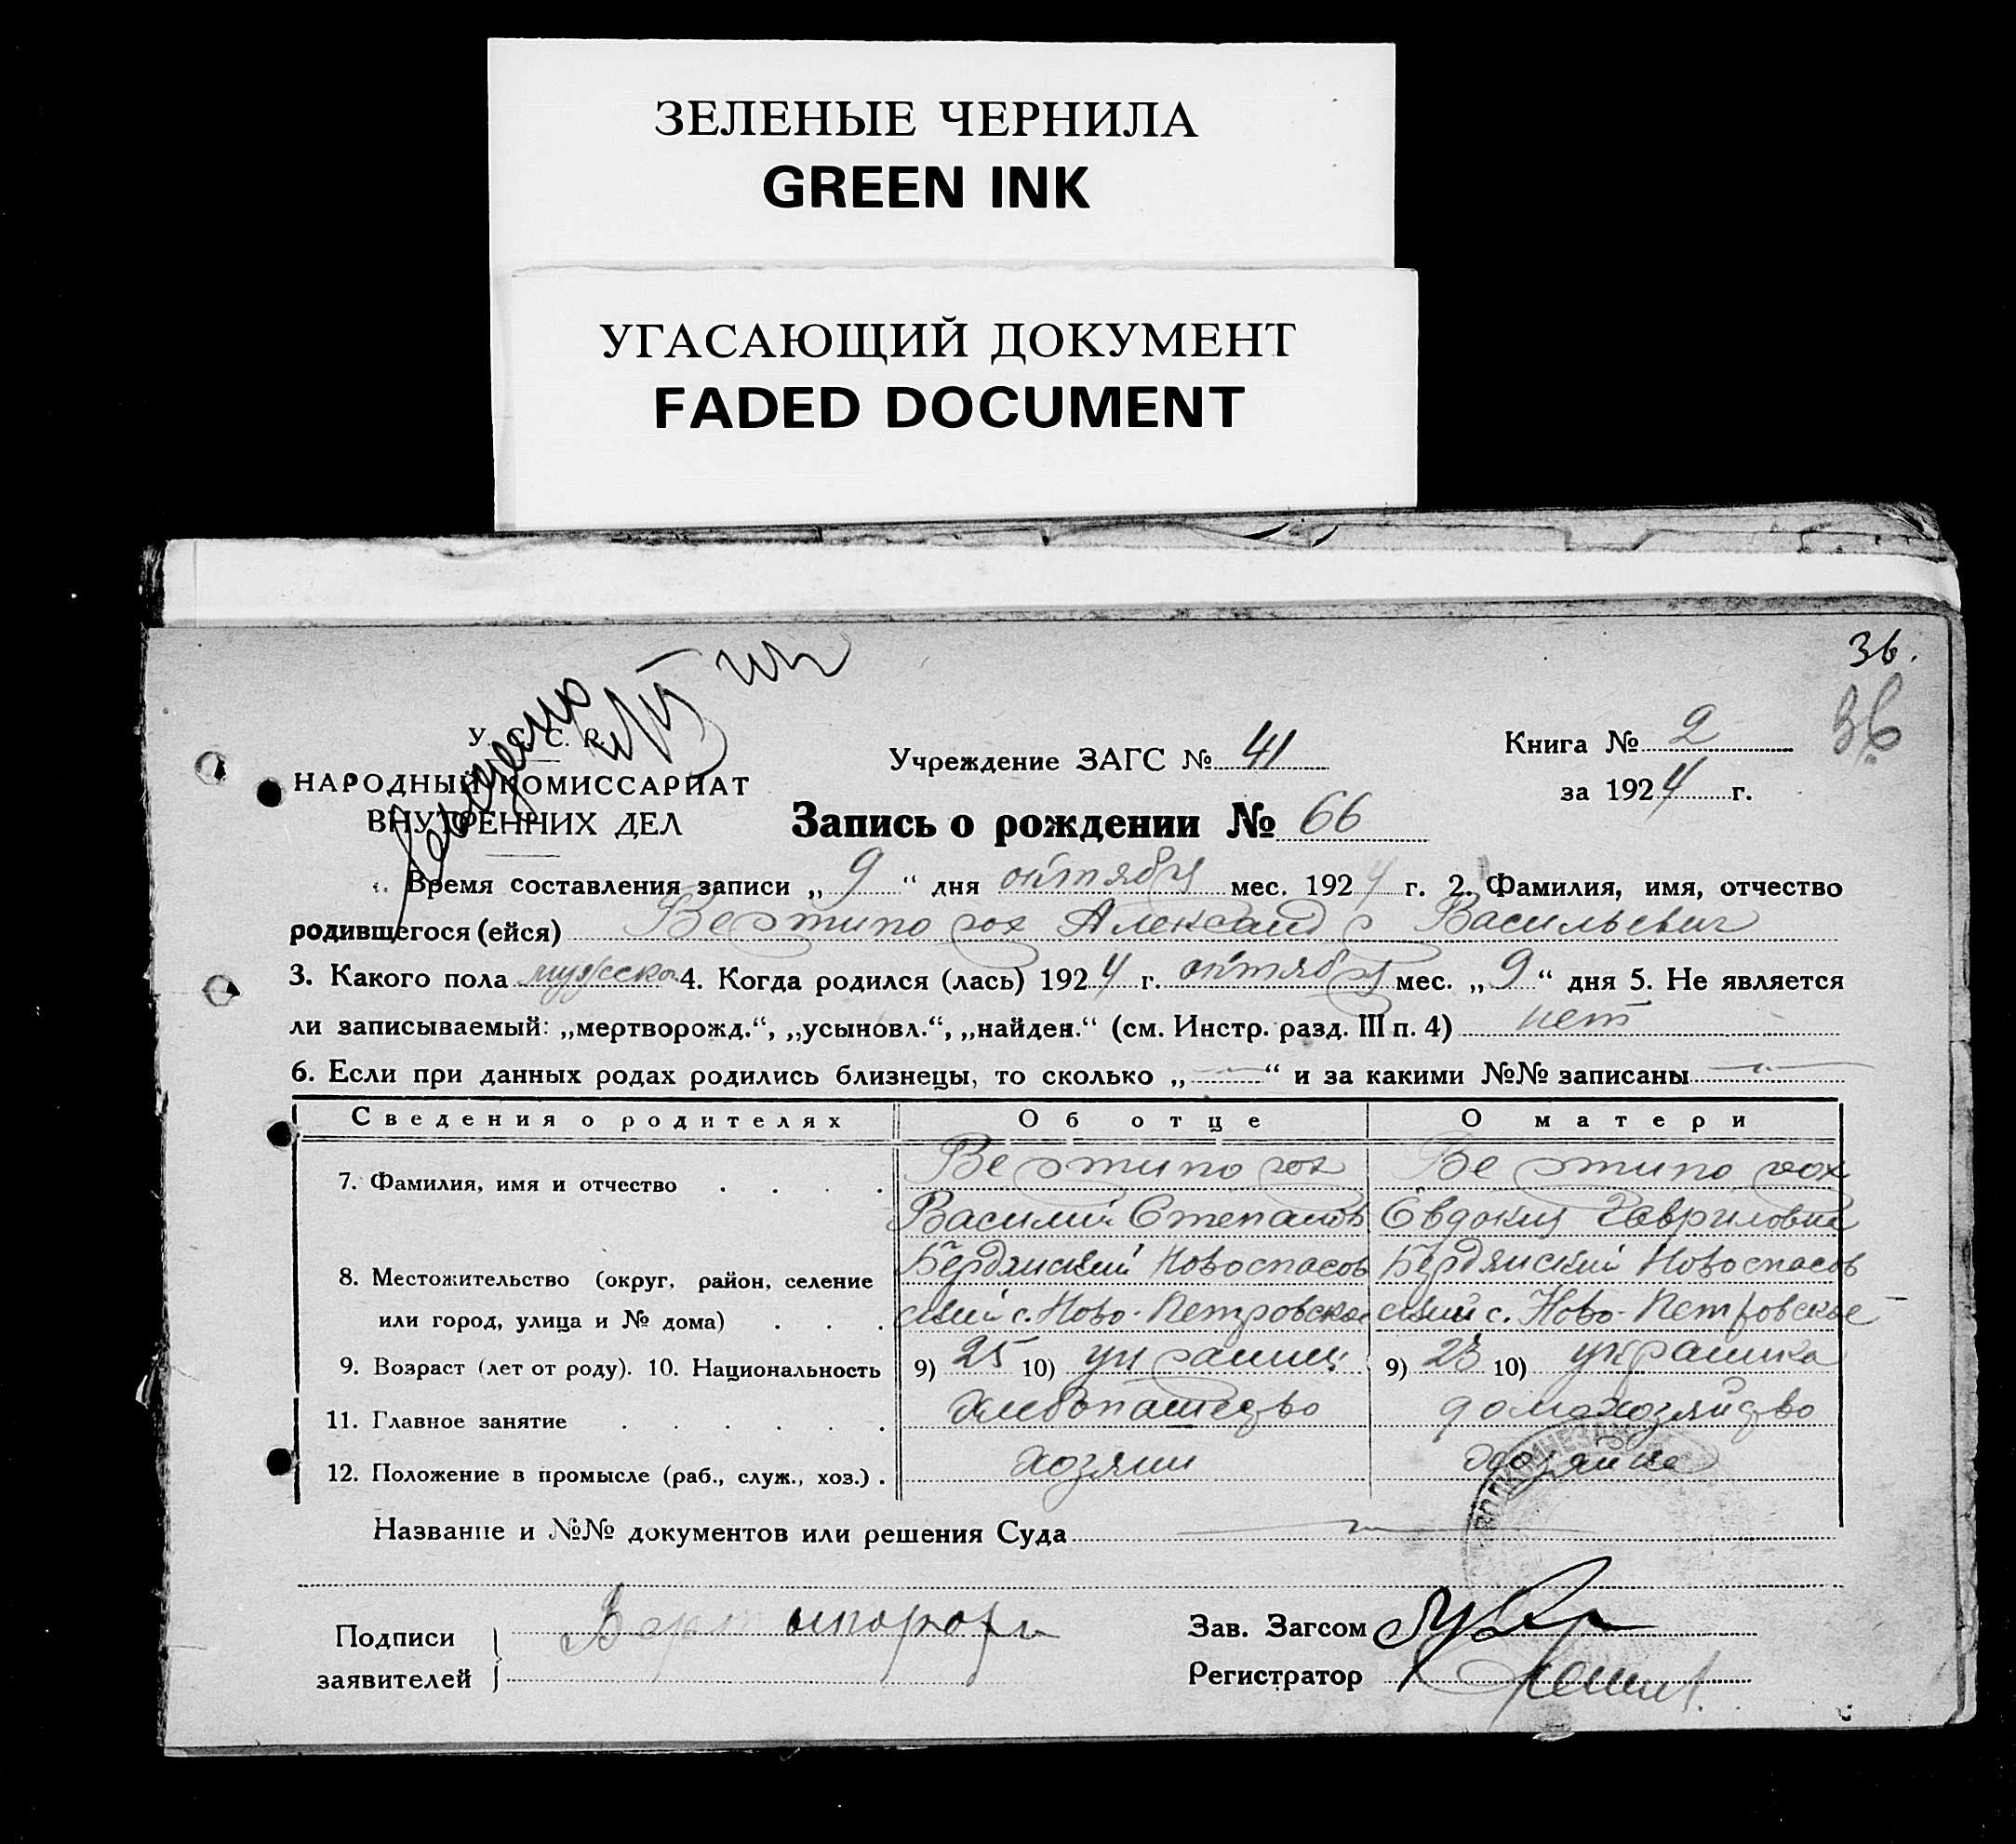 ЗЕЛЕНЫЕ ЧЕРНИЛА
GREEN INK
УГАСАЮЩИЙ ДОКУМЕНТ
FADED DOCUMENT
36.
36
У. С. С. Р.
НАРОДНЫЙ КОМИССАРИАТ
ВНУТРЕННИХ ДЕЛ
Учреждение ЗАГС № 41
Книга № 2
за 1924 г.
Запись о рождении № 66
Время составления записи „ 9 “ дня октября мес. 1924 г. 2. Фамилия, имя, отчество
родившегося (ейся) Вертипорох Александр Васильевич
3. Какого пола мужского 4. Когда родился (лась) 1924 г. октября мес. „ 9 “ дня 5. Не является
ли записываемый: „мертворожд.“, „усыновл.“, „найден.“ (см. Инстр. разд. III п. 4) нет
6. Если при данных родах родились близнецы, то сколько „ — “ и за какими №№ записаны —
Сведения о родителях Об отце О матери
7. Фамилия, имя и отчество Вертипорох Вертипорох
Василий Степанов Евдокия Гавриловна
8. Местожительство (округ, район, селение Бердянский Новоспасов Бердянский Новоспасов
или город, улица и № дома) ский с. Ново-Петровское ский с. Ново-Петровское
9. Возраст (лет от роду). 10. Национальность 9) 25 10) украинец 9) 23 10) украинка
11. Главное занятие хлебопашество домохозяйство
12. Положение в промысле (раб., служ., хоз.) хозяин хозяйка
Название и №№ документов или решения Суда —
Подписи
заявителей
Вертипорох
Зав. Загсом
Регистратор